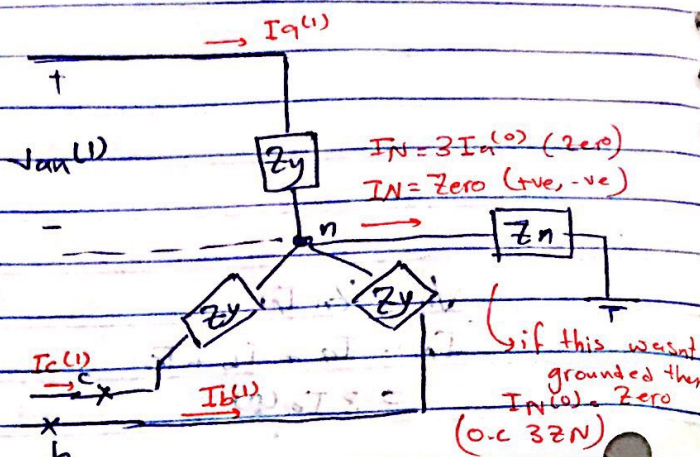 Ia(1)
+
Van(1)
Zy
IN = 3Ia(0) (zero)
IN = Zero (+ve, -ve)
-
n
Zn
Zy
Zy
if this wasnt
grounded then
IN(0) = Zero
(o.c 3ZN)
Ic(1)
c
Ib(1)
b